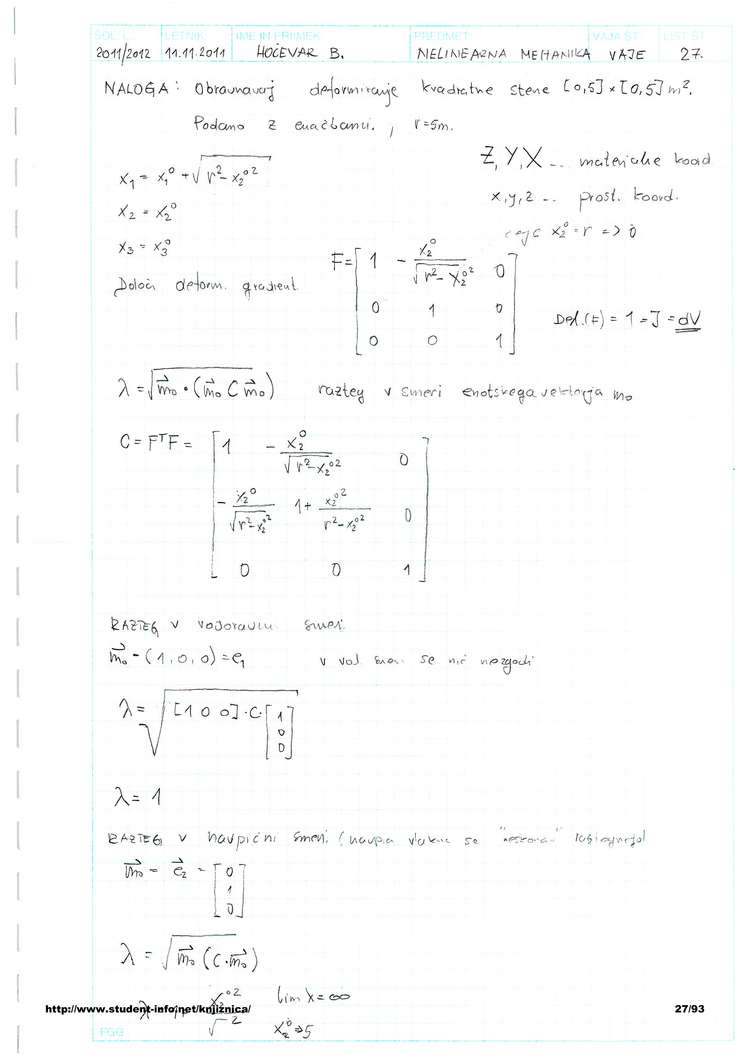 ŠOL. L. LETNIK IME IN PRIIMEK PREDMET VAJA ŠT. LIST ŠT.
2011/2012 11.11.2011 HOČEVAR B. NELINEARNA MEHANIKA VAJE 27.
NALOGA: Obravnavaj deformiranje kvadratne stene [0,5] × [0,5] m².
Podano z enačbami., r=5m.
Z, Y, X ... materialne koord
x₁ = x₁⁰ + √(r² - x₂⁰²)
x, y, z .. prost. koord.
x₂ = x₂⁰
x₂⁰ = r => 0
x₃ = x₃⁰
Določi deform. gradient
F = [1 -x₂⁰/√(r² - x₂⁰²) 0
0 1 0
0 0 1]
Det.(F) = 1 = J = dV
λ = √(m₀ · (m₀ C m₀)) razteg v smeri enotskega vektorja m₀
C = FᵀF = [1 -x₂⁰/√(r² - x₂⁰²) 0
-x₂⁰/√(r² - x₂⁰²) 1 + x₂⁰²/(r² - x₂⁰²) 0
0 0 1]
RAZTEG v vodoravni smeri.
m₀ = (1, 0, 0) = e₁ v vod. smeri se nič ne zgodi
λ = √([1 0 0] · C · [1 0 0])
λ = 1
RAZTEG v navpični smeri. (navp. vlakna se
m₀ = e₂ = [0 1 0]
λ = √(m₀ (C · m₀))
lim λ = ∞
x₂⁰ → 5
http://www.student-info.net/knjiznica/ 27/93
FGG